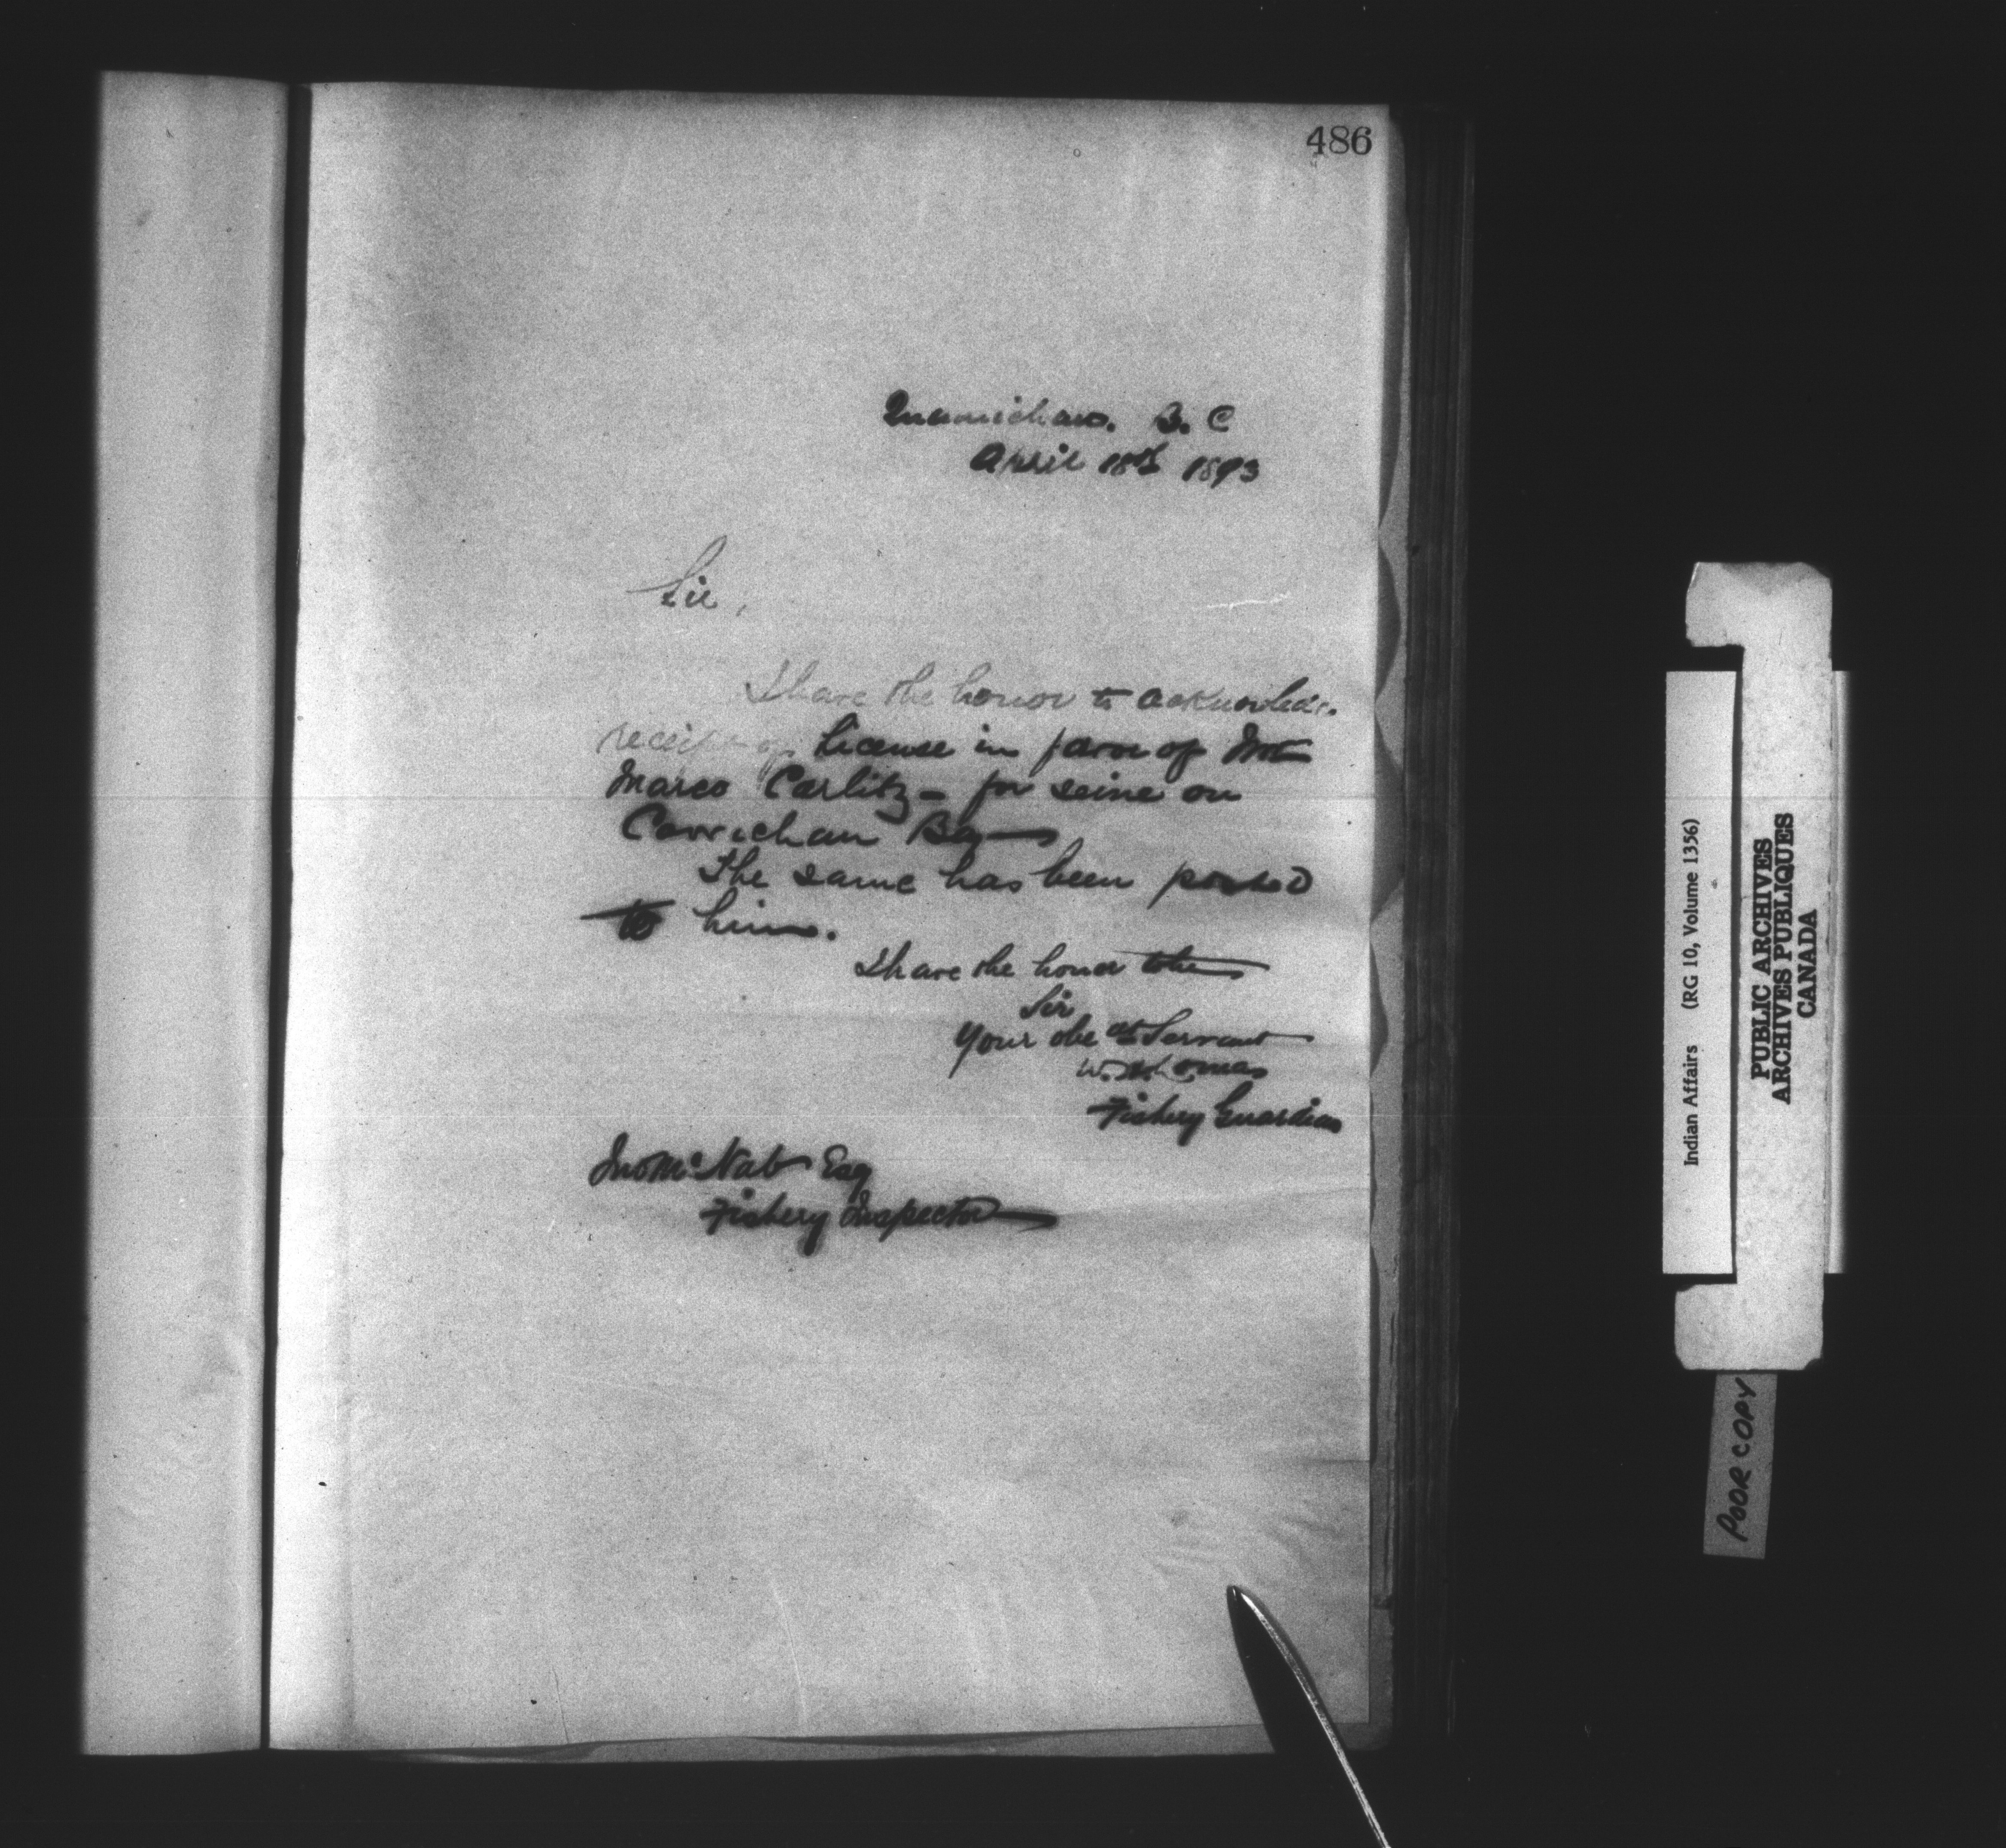 486
Quamichan. B. C
April 18th 1893
Sir,
I have the honor to acknowledge
receipt of License in favor of Mr
Marco Carlitz - for seine on
Cowichan Bay
The same has been posted
to him.
I have the honor to be
Sir
Your obedt Servant
W. H. Lomas
Fishery Guardian
Jno Mc Nab Esq
Fishery Inspector
Indian Affairs (RG 10, Volume 1356)
PUBLIC ARCHIVES
ARCHIVES PUBLIQUES
CANADA
POOR COPY